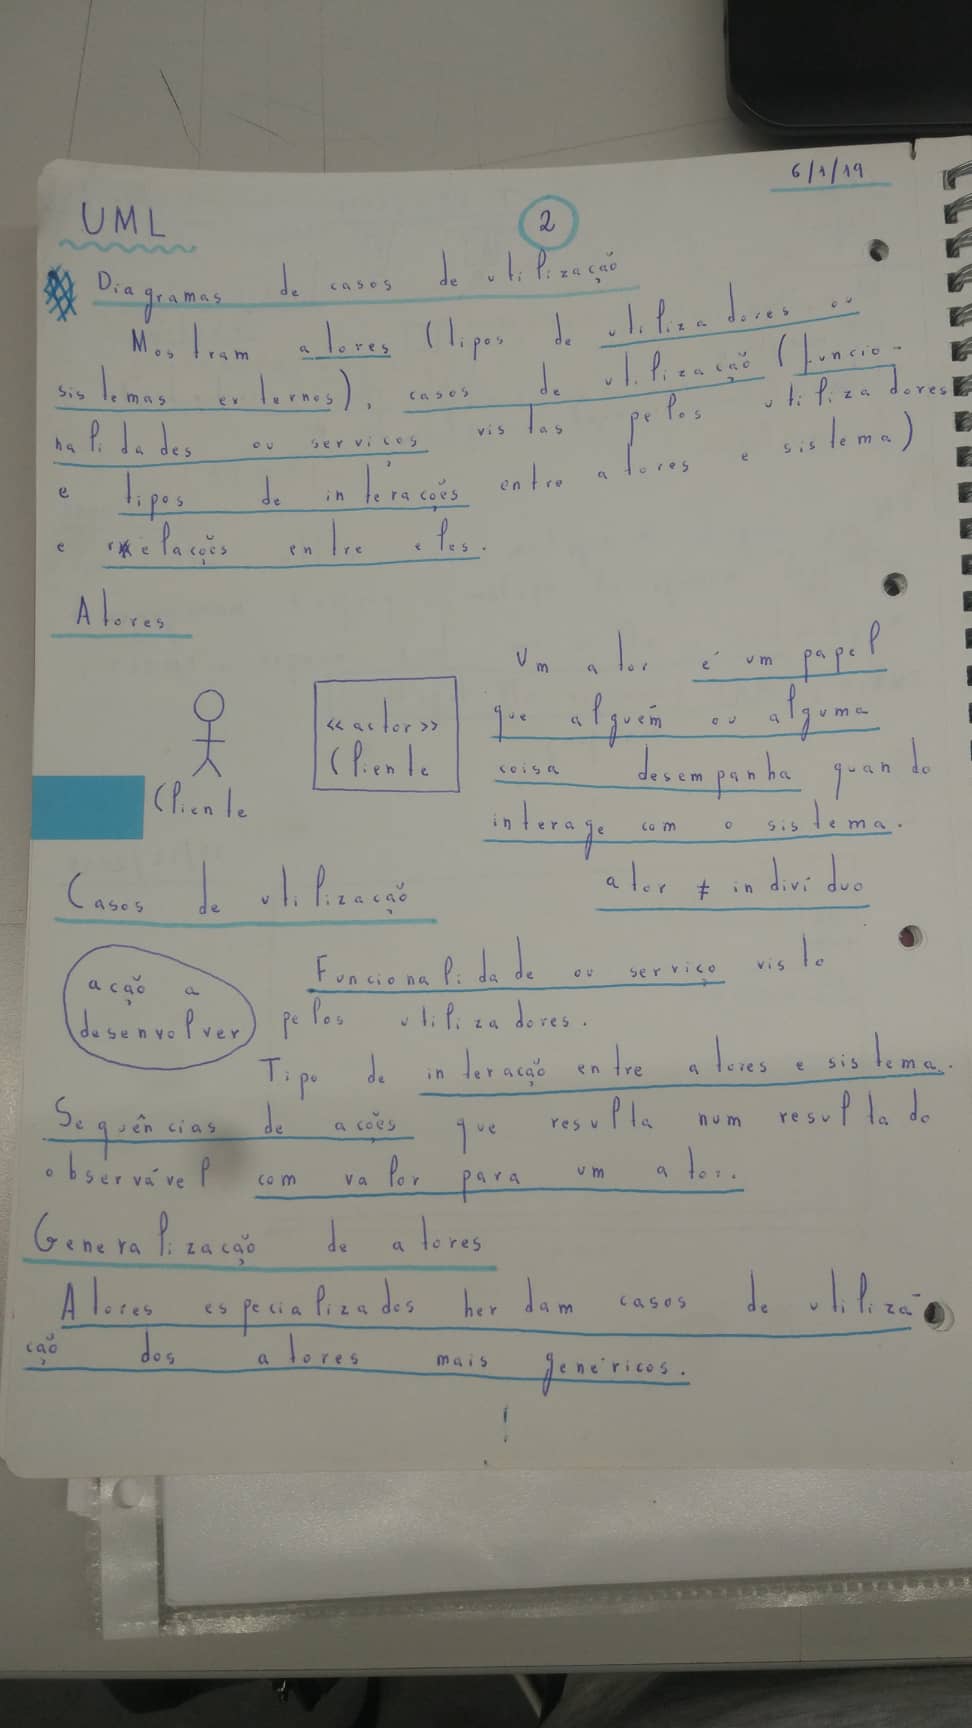 6/1/19
UML
2
Diagramas de casos de utilização
Mostram atores (tipos de utilizadores ou
sistemas externos), casos de utilização (funcio-
nalidades ou serviços vistas pelos utilizadores
e tipos de interações entre atores e sistema)
e relações entre eles.
Atores
Um ator é um papel
que alguém ou alguma
coisa desempanha quando
interage com o sistema.
Cliente
<<actor>>
Cliente
ator ≠ indivíduo
Casos de utilização
ação a
desenvolver
Funcionalidade ou serviço visto
pelos utilizadores.
Tipo de interação entre atores e sistema.
Sequências de ações que resulta num resultado
observável com valor para um ator.
Generalização de atores
Atores especializados herdam casos de utiliza-
ção dos atores mais genéricos.
!